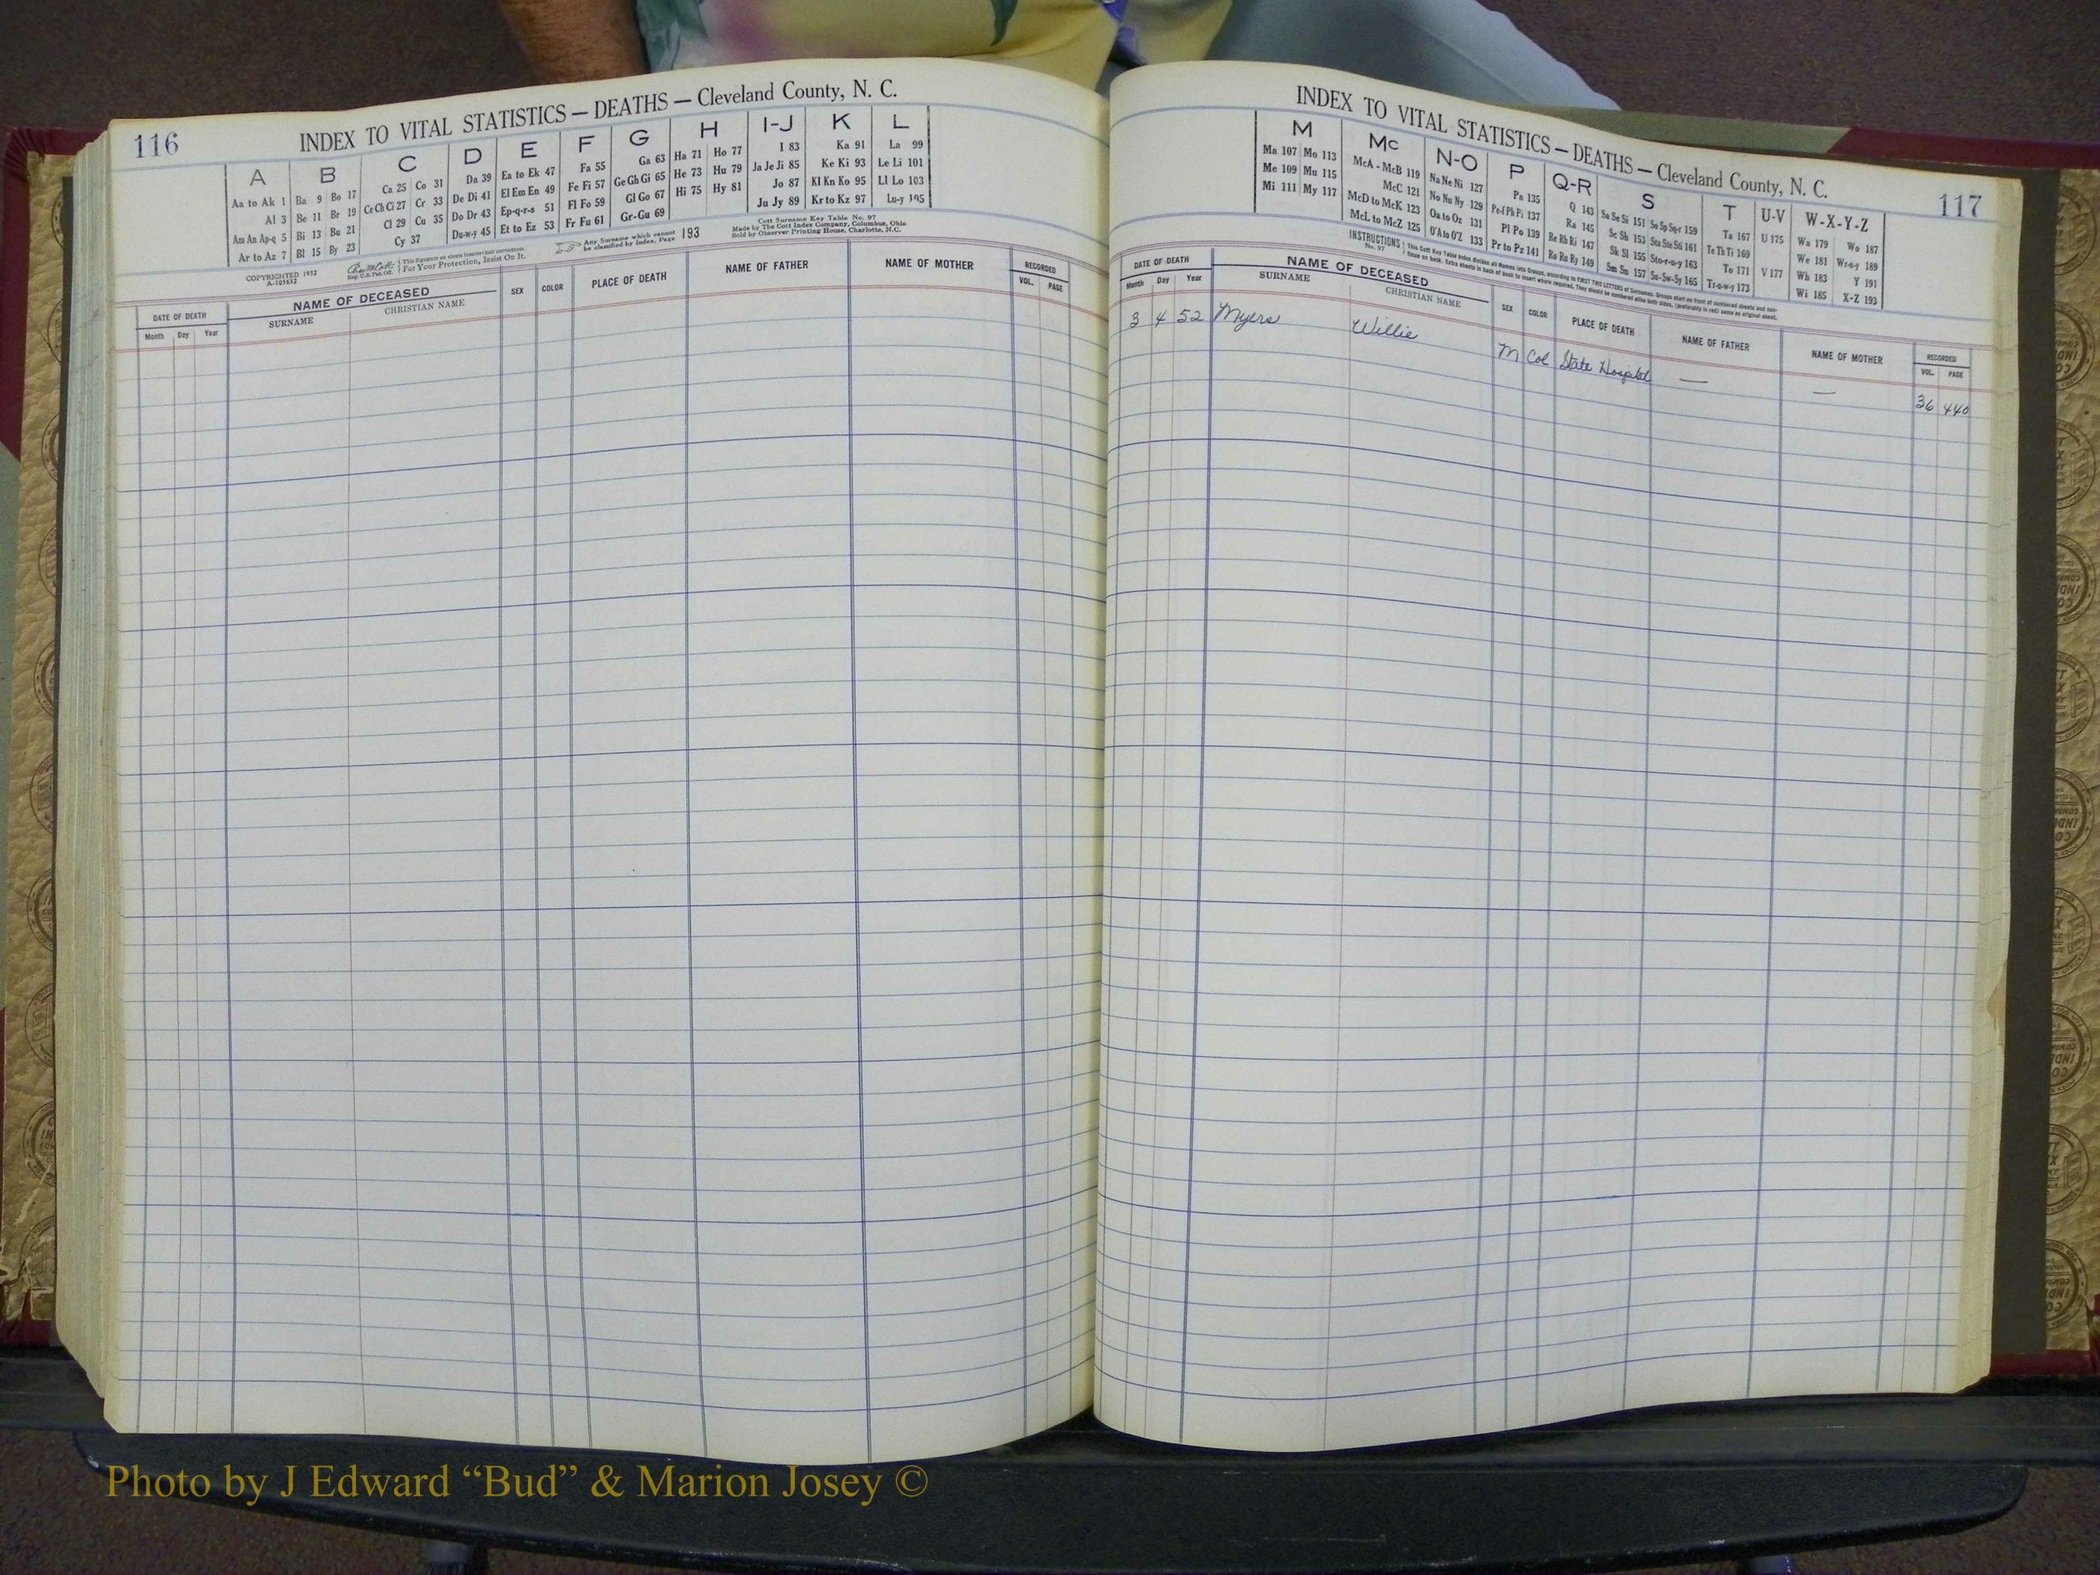 116
INDEX TO VITAL STATISTICS — DEATHS — Cleveland County, N. C.
A B C D E F G H I-J K L
Aa to Ak 1 Ba 9 Bo 17 Ca 25 Co 31 Da 39 Ea to Ek 47 Fa 55 Ga 63 Ha 71 Ho 77 I 83 Ka 91 La 99
Al 3 Be 11 Br 19 Ce Ch Ci 27 Cr 33 De Di 41 El Em En 49 Fe Fi 57 Ge Gh Gi 65 He 73 Hu 79 Ja Je Ji 85 Ke Ki 93 Le Li 101
Am An Ap-q 5 Bi 13 Bu 21 Cl 29 Cu 35 Do Dr 43 Ep-q-r-s 51 Fl Fo 59 Gl Go 67 Hi 75 Hy 81 Jo 87 Kl Kn Ko 95 Ll Lo 103
Ar to Az 7 Bl 15 By 23 Cy 37 Du-w-y 45 Et to Ez 53 Fr Fu 61 Gr-Gu 69 Ju Jy 89 Kr to Kz 97 Lu-y 105
COPYRIGHTED 1932
A-103652
For Your Protection, Insist On It.
Any Surname which cannot be classified by Index, Page 193
Cott Surname Key Table No. 97
Made by The Cott Index Company, Columbus, Ohio
Sold by Observer Printing House, Charlotte, N.C.
DATE OF DEATH
Month Day Year
NAME OF DECEASED
SURNAME CHRISTIAN NAME
SEX COLOR PLACE OF DEATH NAME OF FATHER NAME OF MOTHER
RECORDED
VOL. PAGE
INDEX TO VITAL STATISTICS — DEATHS — Cleveland County, N. C.
117
M Mc N-O P Q-R S T U-V W-X-Y-Z
Ma 107 Mo 113 McA - McB 119 Na Ne Ni 127 Pa 135 Q 143 Sa Se Si 151 So Sp Sq-r 159 Ta 167 U 175 Wa 179 Wo 187
Me 109 Mu 115 McC 121 No Nu Ny 129 Pe-f Ph Pi 137 Ra 145 Sc Sh 153 Sta Ste Sti 161 Te Th Ti 169 V 177 We 181 Wr-u-y 189
Mi 111 My 117 McD to McK 123 Oa to Oz 131 Pl Po 139 Re Rh Ri 147 Sk Sl 155 Sto-r-u-y 163 To 171 Wh 183 Y 191
McL to McZ 125 O'A to O'Z 133 Pr to Pz 141 Ro Ru Ry 149 Sm Sn 157 Su-Sw-Sy 165 Tr-u-w-y 173 Wi 185 X-Z 193
INSTRUCTIONS
No. 97
DATE OF DEATH
Month Day Year
NAME OF DECEASED
SURNAME CHRISTIAN NAME
SEX COLOR PLACE OF DEATH NAME OF FATHER NAME OF MOTHER
RECORDED
VOL. PAGE
3 4 52 Myers Willie M Col State Hospital — — 36 440
Photo by J Edward “Bud” & Marion Josey ©